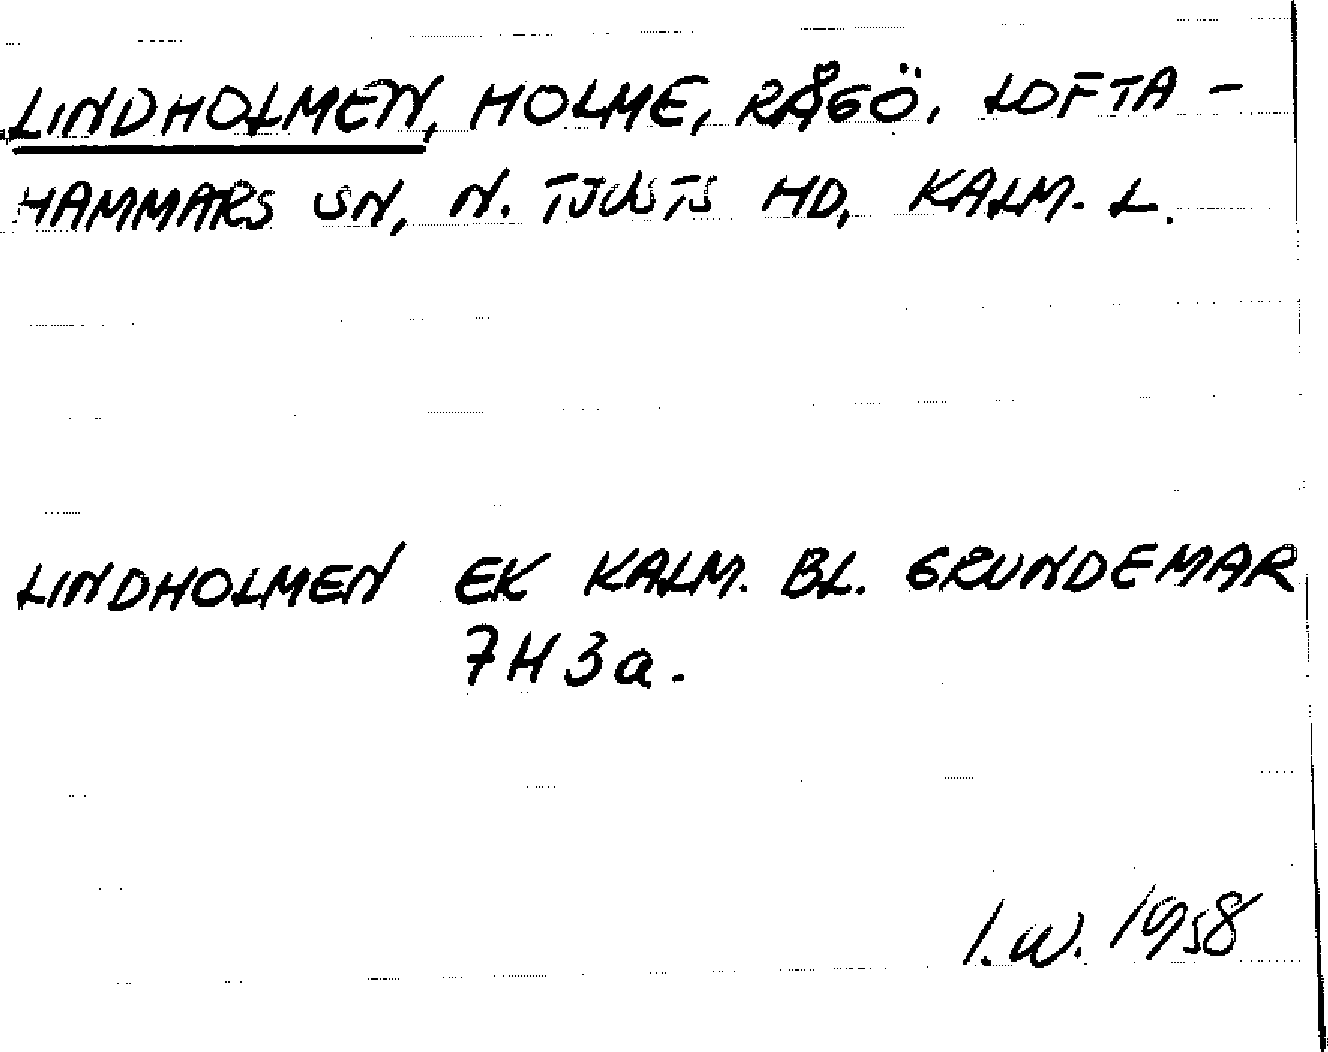 LINDHOLMEN, HOLME, RÅGÖ, LOFTA-
HAMMARS SN, N. TJUSTS HD, KALM. L.
LINDHOLMEN EK KALM. BL. GRUNDEMAR
7H3a.
I.W. 1958